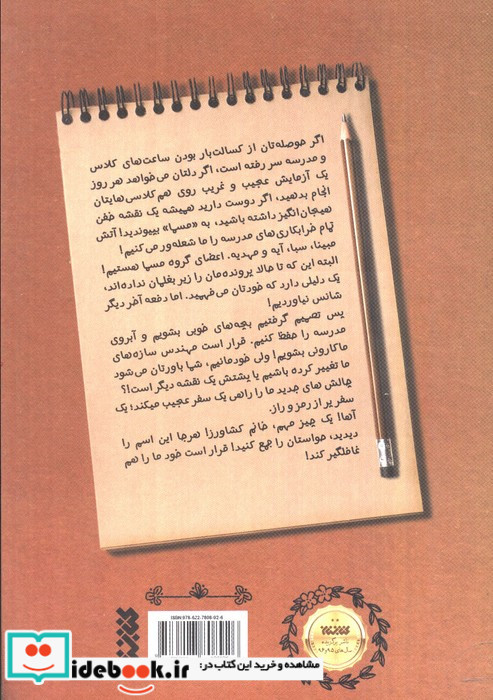 اگر حوصله‌تان از کسالت‌بار بودن ساعت‌های کلاس
و مدرسه سر رفته است، اگر دلتان می‌خواهد هر روز
یک آزمایش عجیب و غریب روی هم‌کلاسی‌هایتان
انجام بدهید، اگر دوست دارید همیشه یک نقشه خفن
هیجان‌انگیز داشته باشید، به «مسپا» بپیوندید! آتش
تمام خرابکاری‌های مدرسه را ما شعله‌ور می‌کنیم!
مبینا، سبا، آیه و مهدیه. اعضای گروه مسپا هستیم!
البته این که تا حالا پرونده‌مان را زیر بغلمان نداده‌اند،
یک دلیلی دارد که خودتان می‌فهمید. اما دفعه آخر دیگر
شانس نیاوردیم!
پس تصمیم گرفتیم بچه‌های خوبی بشویم و آبروی
مدرسه را حفظ کنیم. قرار است مهندس سازه‌های
ماکارونی بشویم! ولی خودمانیم، شما باورتان می‌شود
ما تغییر کرده باشیم یا پشتش یک نقشه دیگر است!؟
چالش های جدید ما را راهی یک سفر عجیب میکند؛ یک
سفر پر از رمز و راز.
آها! یک چیز مهم، خانم کشاورز! هرجا این اسم را
دیدید، حواستان را جمع کنید! قرار است خود ما را هم
غافلگیر کند!
مشاهده و خرید این کتاب در:
idebook.ir